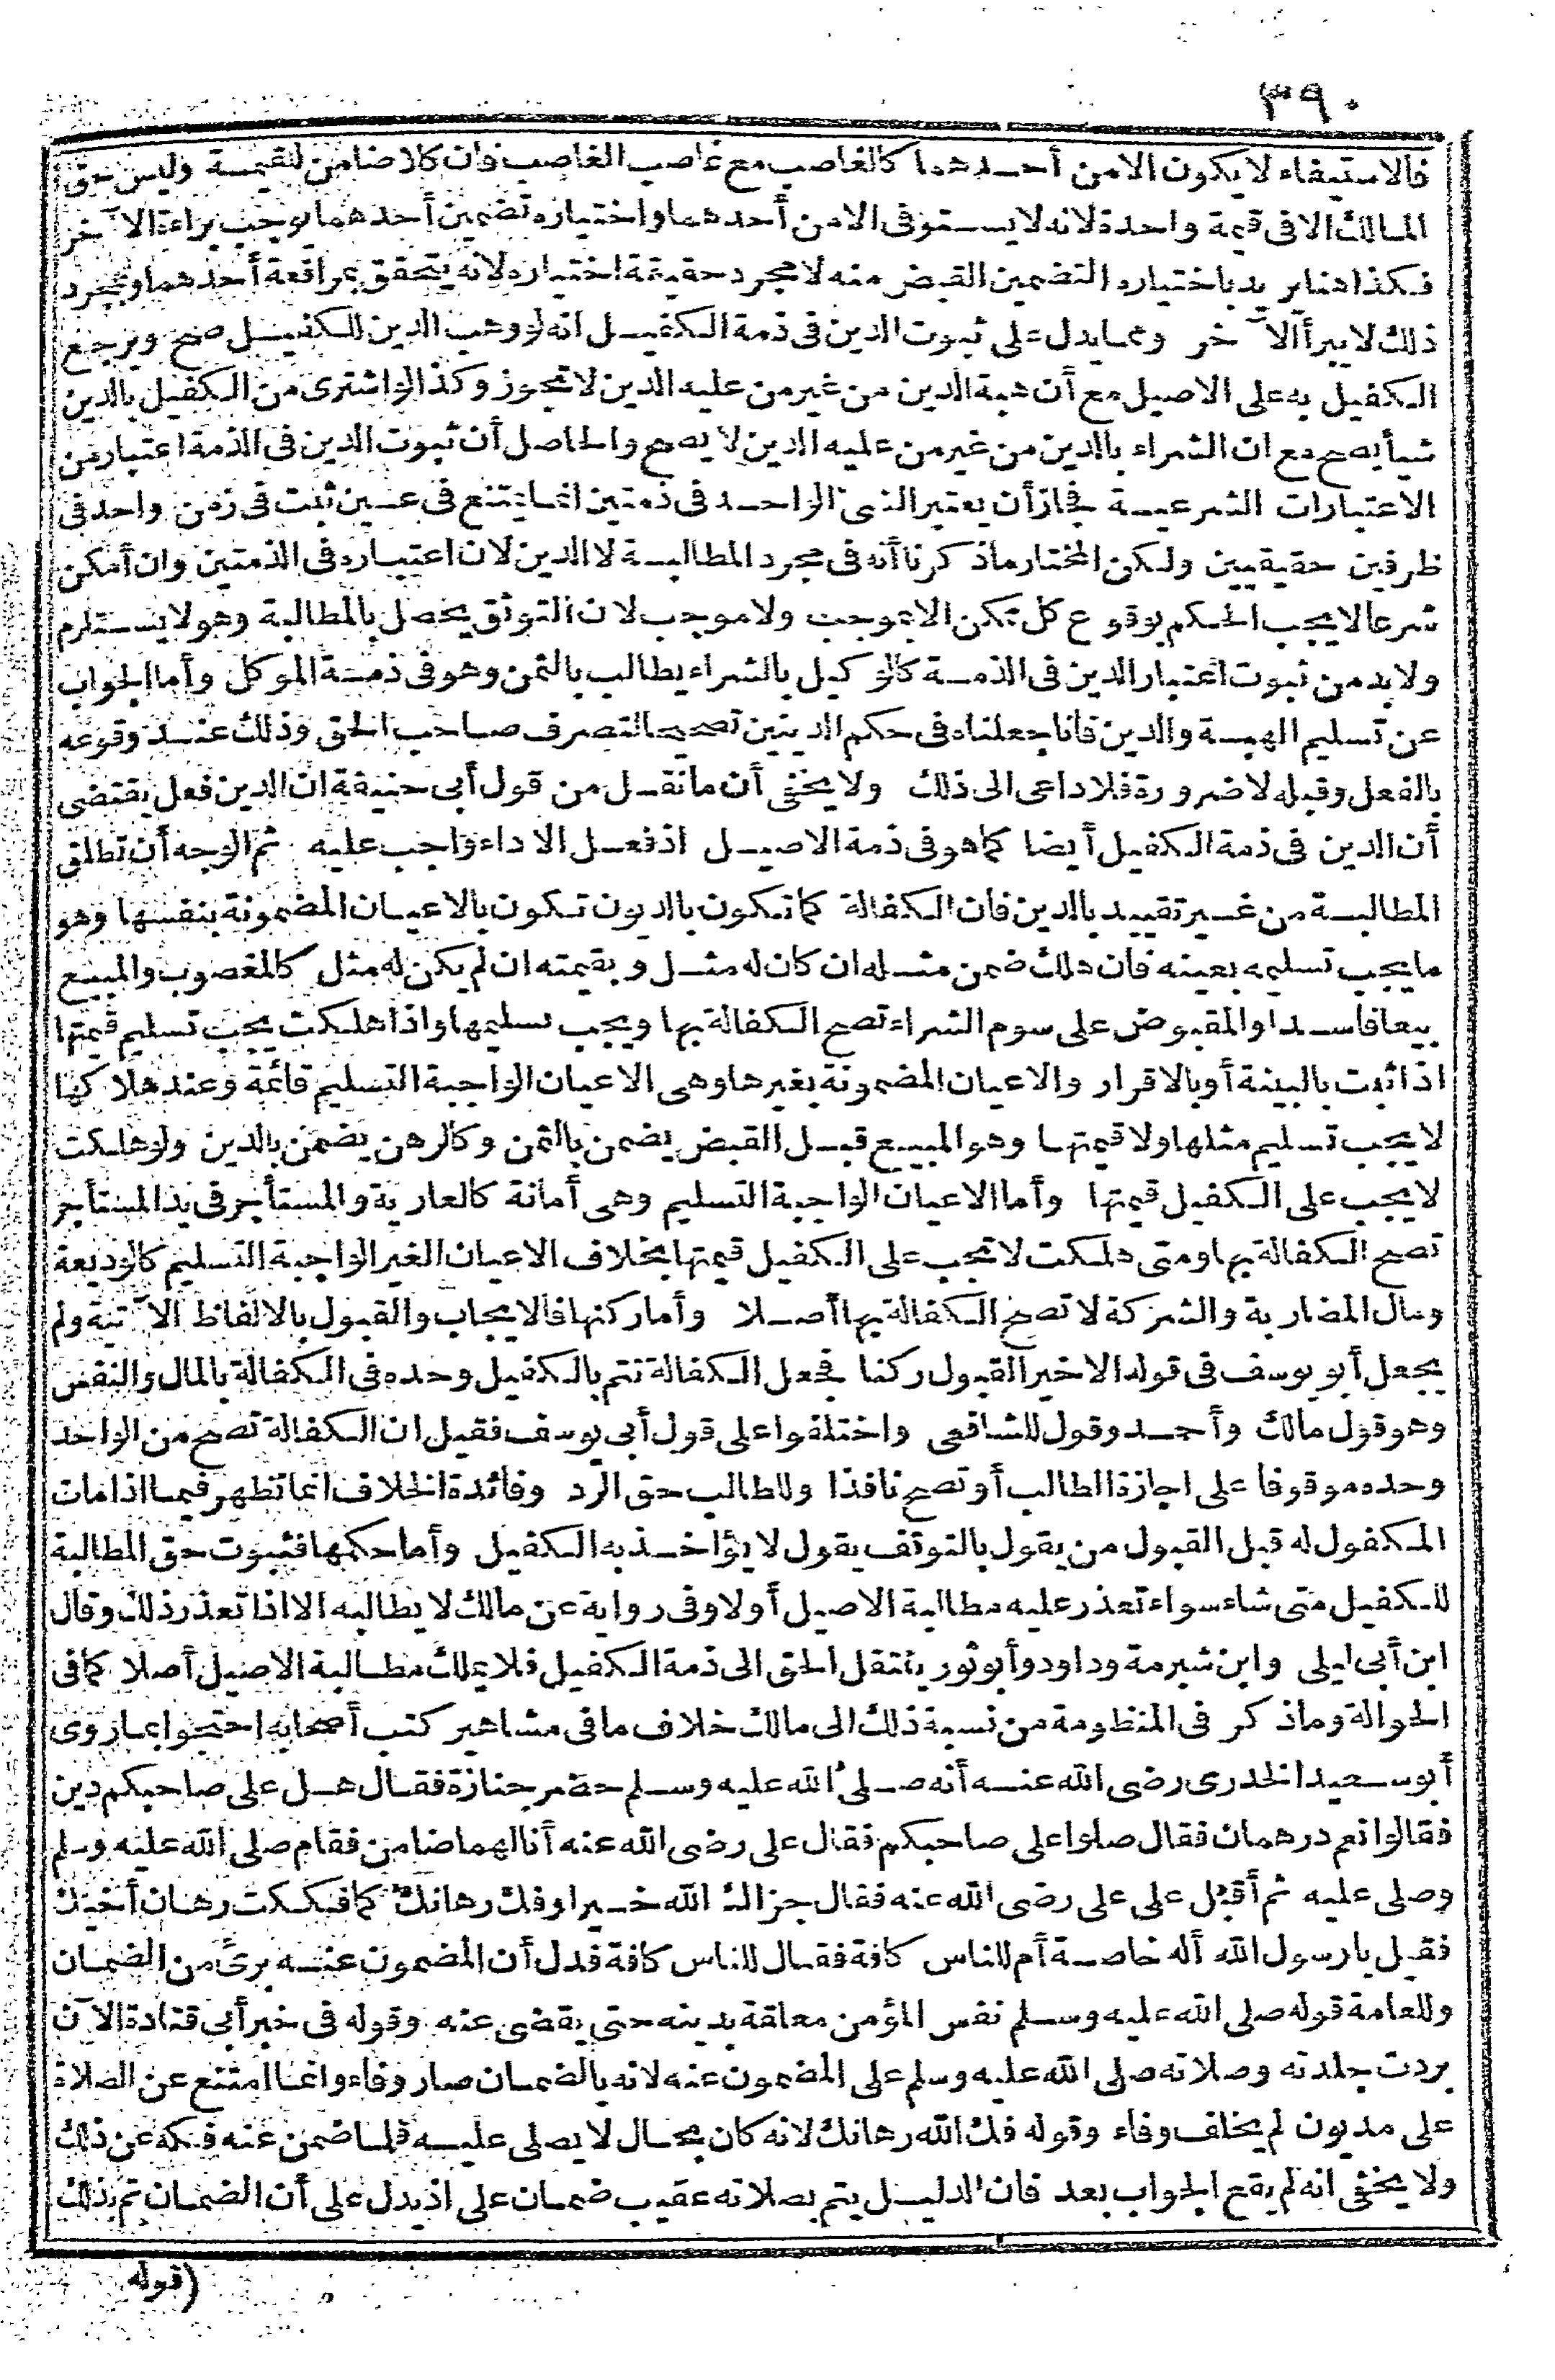 ٣٩٠
فالاستيفاء لا يكون الا من أحدهما كالغاصب مع غاصب الغاصب فان كلا ضامن للقيمة وليس حق
المالك الا فى قيمة واحدة لانه لا يستوفى الا من أحدهما واختياره تضمين أحدهما يوجب براءة الآخر
فكذا هنا يريد باختياره التضمين القبض منه لا مجرد حقيقة اختياره لانه يتحقق بمرافعة أحدهما وبمجرد
ذلك لا يبرأ الآخر ومما يدل على ثبوت الدين فى ذمة الكفيل انه لو وهب الدين للكفيل صح ويرجع
الكفيل به على الاصيل مع أن هبة الدين من غير من عليه الدين لا تجوز وكذا لو اشترى من الكفيل بالدين
شيأ يصح مع ان الشراء بالدين من غير من عليه الدين لا يصح والحاصل أن ثبوت الدين فى الذمة اعتبار من
الاعتبارات الشرعية فجاز أن يعتبر الشئ الواحد فى ذمتين انما يمتنع فى عين ثبت فى زمن واحد فى
ظرفين حقيقيين ولكن المختار ما ذكرنا أنه فى مجرد المطالبة لا الدين لان اعتباره فى الذمتين وان أمكن
شرعا لا يجب الحكم بوقوع كل ممكن الا بموجب ولا موجب لان التوثق يحصل بالمطالبة وهو لا يستلزم
ولا بد من ثبوت اعتبار الدين فى الذمة كالوكيل بالشراء يطالب بالثمن وهو فى ذمة الموكل وأما الجواب
عن تسليم الهبة والدين فانا جعلناه فى حكم الدينين تصحيحا لتصرف صاحب الحق وذلك عند وقوعه
بالفعل وقبله لا ضرورة فلا داعى الى ذلك ولا يخفى أن ما نقل من قول أبى حنيفة ان الدين فعل يقتضى
أن الدين فى ذمة الكفيل أيضا كما هو فى ذمة الاصيل اذ فعل الاداء واجب عليه ثم الوجه أن تطلق
المطالبة من غير تقييد بالدين فان الكفالة كما تكون بالديون تكون بالاعيان المضمونة بنفسها وهو
ما يجب تسليمه بعينه فان هلك ضمن مثله ان كان له مثل وبقيمته ان لم يكن له مثل كالمغصوب والمبيع
بيعا فاسدا والمقبوض على سوم الشراء تصح الكفالة بها ويجب تسليمها واذا هلكت يجب تسليم قيمتها
اذا ثبت بالبينة أو بالاقرار والاعيان المضمونة بغيرها وهى الاعيان الواجبة التسليم قائمة وعند هلاكها
لا يجب تسليم مثلها ولا قيمتها وهو المبيع قبل القبض يضمن بالثمن وكالرهن يضمن بالدين ولو هلكت
لا يجب على الكفيل قيمتها وأما الاعيان الواجبة التسليم وهى أمانة كالعارية والمستأجر فى يد المستأجر
تصح الكفالة بها ومتى هلكت لا تجب على الكفيل قيمتها بخلاف الاعيان الغير الواجبة التسليم كالوديعة
ومال المضاربة والشركة لا تصح الكفالة بها أصلا وأما ركنها فالايجاب والقبول بالالفاظ الآتية ولم
يجعل أبو يوسف فى قوله الاخير القبول ركنا فجعل الكفالة تتم بالكفيل وحده فى الكفالة بالمال والنفس
وهو قول مالك وأحمد وقول للشافعى واختلفوا على قول أبى يوسف فقيل ان الكفالة تصح من الواحد
وحده موقوفا على اجازة الطالب أو تصح نافذا وللطالب حق الرد وفائدة الخلاف انما تظهر فيما اذا مات
المكفول له قبل القبول من يقول بالتوقف يقول لا يؤاخذ به الكفيل وأما حكمها فثبوت حق المطالبة
للكفيل متى شاء سواء تعذر عليه مطالبة الاصيل أو لا وفى رواية عن مالك لا يطالبه الا اذا تعذر ذلك وقال
ابن أبى ليلى وابن شبرمة وداود وأبو ثور ينتقل الحق الى ذمة الكفيل فلا يملك مطالبة الاصيل أصلا كما فى
الحوالة وما ذكر فى المنظومة من نسبة ذلك الى مالك خلاف ما فى مشاهير كتب أصحابه احتجوا بما روى
أبو سعيد الخدرى رضى الله عنه أنه صلى الله عليه وسلم حضر جنازة فقال هل على صاحبكم دين
فقالوا نعم درهمان فقال صلوا على صاحبكم فقال على رضى الله عنه أنا لهما ضامن فقام صلى الله عليه وسلم
وصلى عليه ثم أقبل على على رضى الله عنه فقال جزاك الله خيرا وفك رهانك كما فككت رهان أخيك
فقيل يا رسول الله أله خاصة أم للناس كافة فقال للناس كافة فدل أن المضمون عنه برئ من الضمان
وللعامة قوله صلى الله عليه وسلم نفس المؤمن معلقة بدينه حتى يقضى عنه وقوله فى خبر أبى قتادة الآن
بردت جلدته وصلاته صلى الله عليه وسلم على المضمون عنه لانه بالضمان صار وفاء وانما امتنع عن الصلاة
على مديون لم يخلف وفاء وقوله فك الله رهانك لانه كان بحال لا يصلى عليه فلما ضمن عنه فكه عن ذلك
ولا يخفى انه لم يقع الجواب بعد فان الدليل يتم بصلاته عقيب ضمان على اذ يدل على أن الضمان تم بذلك
(قوله